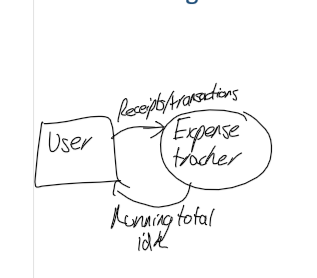 Receipts/transactions
User
Expense
tracher
Running total
idk